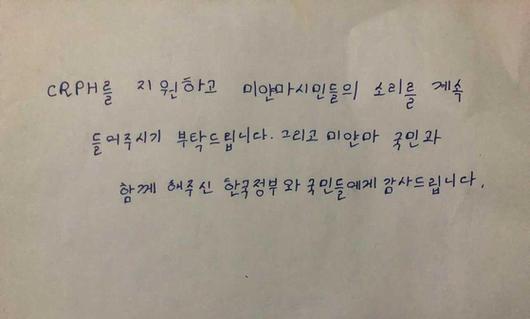 CRPH를 지원하고 미얀마시민들의 소리를 계속
들어주시기 부탁드립니다. 그리고 미얀마 국민과
함께 해주신 한국정부와 국민들에게 감사드립니다.